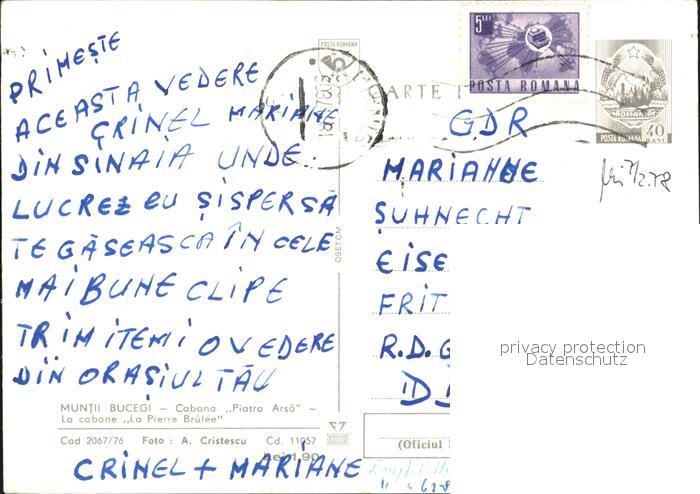 PRIMEȘTE
ACEASTA VEDERE
CRINEL MARIANE
DIN SINAIA UNDE
LUCREZ EU ȘI SPER SĂ
TE GĂSEASCA ÎN CELE
MAI BUNE CLIPE
TRIMITEMI O VEDERE
DIN ORAȘIUL TĂU
MUNȚII BUCEGI – Cabana „Piatra Arsă” –
La cabane „La Pierre Brûlée”
Cod 2067/76 Foto : A. Cristescu Cd. 11057
Lei 1,90
CRINEL + MARIANE
OSETCM
POSTA ROMANA
CARTE
5 LEI
POSTA ROMANA
POSTA ROMANA 40 BANI
GDR
MARIANNE
ȘUHNECHT
EISE
FRIT
R.D.G
privacy protection
Datenschutz
(Oficiul